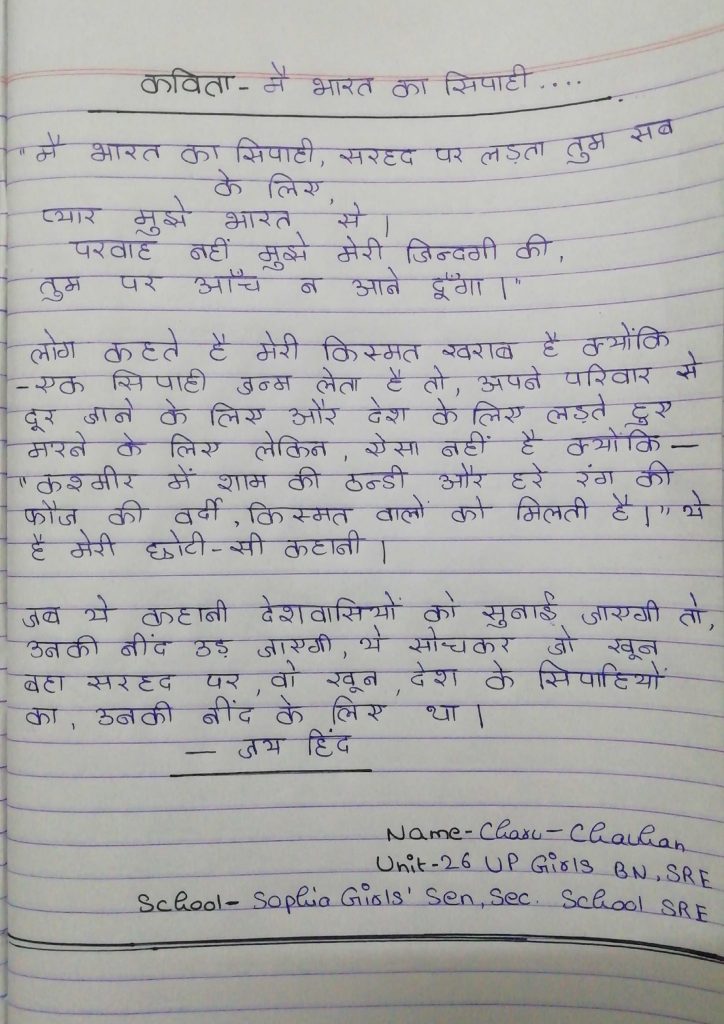 कविता - मै भारत का सिपाही ....
"मै भारत का सिपाही, सरहद पर लड़ता तुम सब
के लिए,
प्यार मुझे भारत से।
परवाह नहीं मुझे मेरी ज़िन्दगी की,
तुम पर आँच न आने दूँगा।"
लोग कहते है मेरी किस्मत खराब है क्योंकि
-एक सिपाही जन्म लेता है तो, अपने परिवार से
दूर जाने के लिए और देश के लिए लड़ते हुए
मरने के लिए लेकिन, ऐसा नहीं है क्योंकि -
"कश्मीर में शाम की ठन्डी और हरे रंग की
फौज की वर्दी, किस्मत वालों को मिलती है।" ये
है मेरी छोटी-सी कहानी।
जब ये कहानी देशवासियों को सुनाई जाएगी तो,
उनकी नींद उड़ जाएगी, ये सोचकर जो खून
बहा सरहद पर, वो खून, देश के सिपाहियों
का, उनकी नींद के लिए था।
- जय हिंद
Name-Charu-Chauhan
Unit-26 UP Girls BN, SRE
School- Sophia Girls' Sen, Sec. School SRE